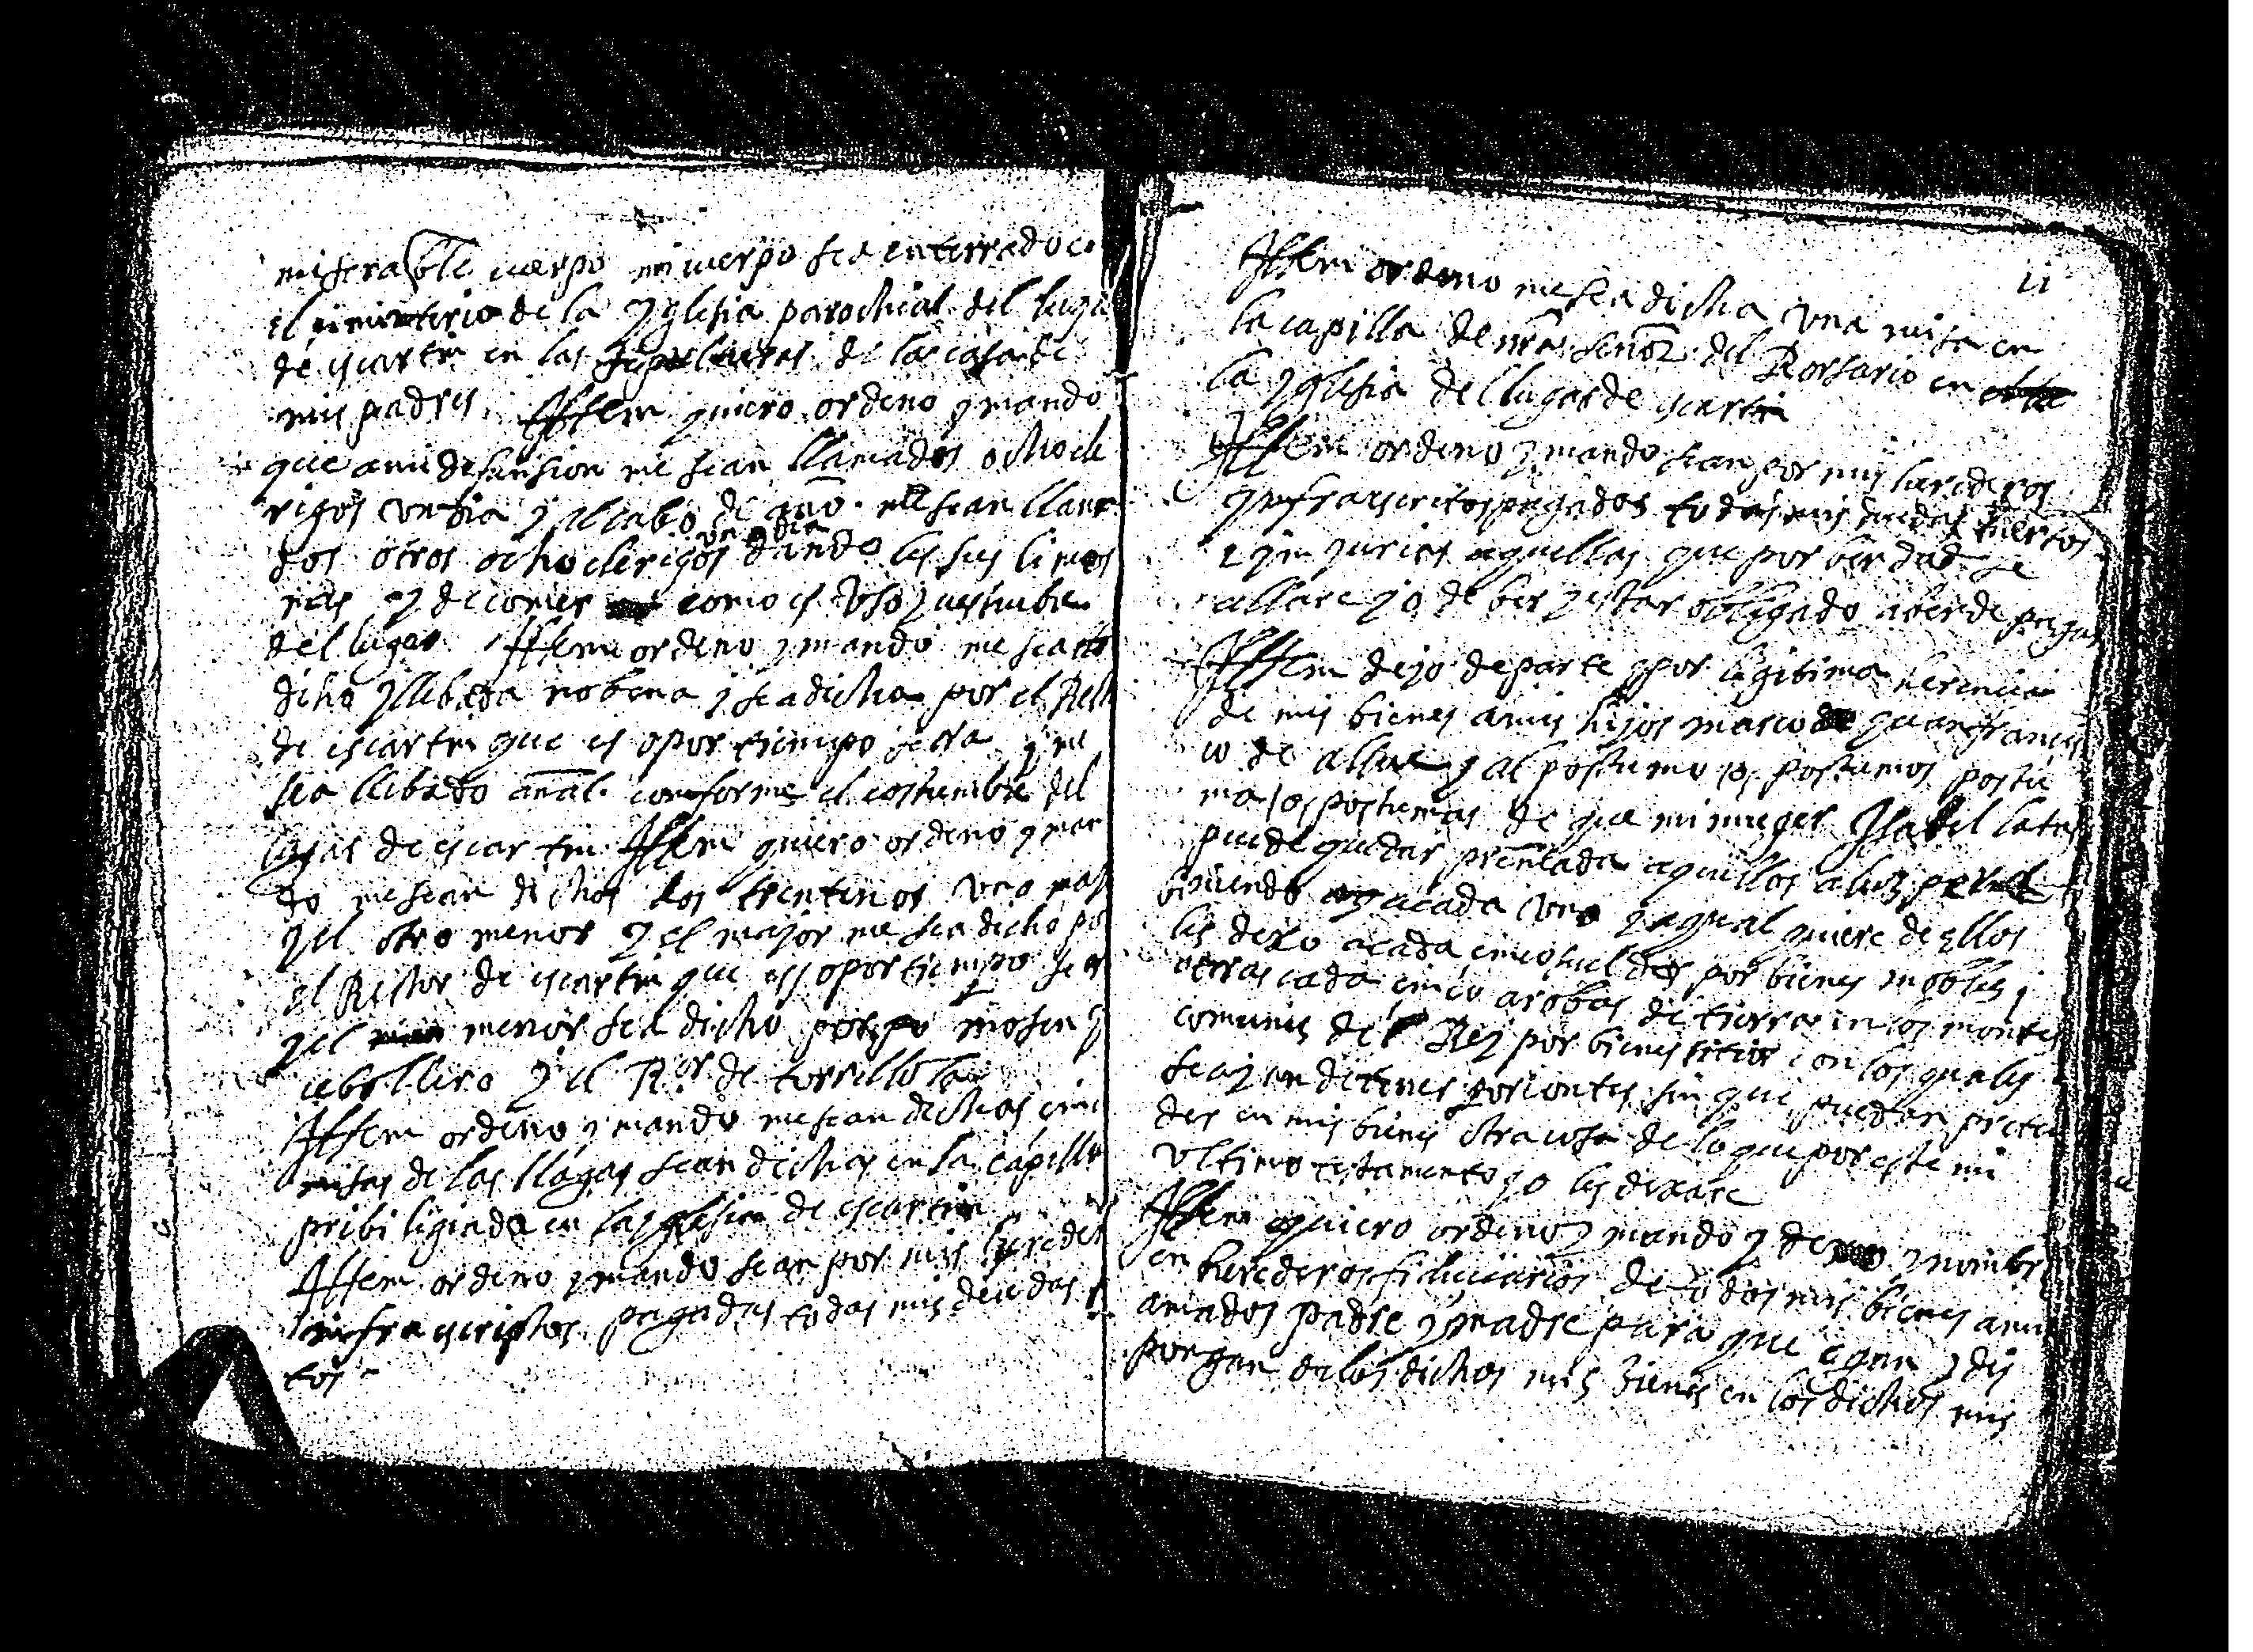 miserable cuerpo mi cuerpo sea enterrado en
el ciminterio de la yglesia parochial del luga
de escartin en las de las casa de
mis padres. Ittem quiero ordeno y mando
que a mi defunsion me sean llamados ocho cle
rigos un dia y al cabo de año me sean llama
dos otros ocho clerigos un dia dando les sus limos
nas y de comer como es uso y custumbre
del lugar Ittem ordeno y mando me sea
dicho y llebada nobena y sea dicha por el Rect
de escartin que es o por tiempo sera y me
sea llebado añal conforme el costumbre del
lugar de escartin Ittem quiero ordeno y man
do me sean dichos dos trentenos uno
y el otro menor y el major me sea dicho po
el Rector de escartin que es o por tiempo sera
y el menor sea dicho por mosen
cebollero y el Ror de torrillola
Ittem ordeno y mando me sean dichas cinc
misas de las llagas sean dichas en la capilla
pribiligiada en la yglesia de escartin
Ittem ordeno y mando sean por mis hereder
infrascriptos pagadas todas mis deudas
tos
11
Ittem ordeno me sea dicha una misa en
la capilla de nra señora del Rorsario en
la yglesia del lugar de escartin
Ittem ordeno y mando sean por mis herederos
ynfraescritos pagados todas mis deudas tuertos
e ynjurias aquellas que por berdad se
allare yo deber y estar obligado aber de pagar
Ittem dejo de parte y por legitima herencia
de mis bienes a mis hijos marco y juan francis
co de allue y al postumo os postumos postu
ma os postumas de que mi muger Ysabel latas
puede quedar preñada aquellos a luz
biniendo a cada uno y a qual quiere de ellos
les dexo a cada cinco sueldos por bienes mobles y
otras cada cinco arobas de tierra en los montes
comunes del Rey por bienes sitios con los quales
se ayan de tener por contentes sin que puedan preten
der en mis bienes otra cosa de lo que por este mi
ultimo testamento yo les dexare
Ittem quiero ordeno y mando y dexo y nombr
en herederos fiduciarios de todos mis bienes a mis
amados padre y madre para que agan y dis
pongan de los dichos mis bienes en los dichos mis